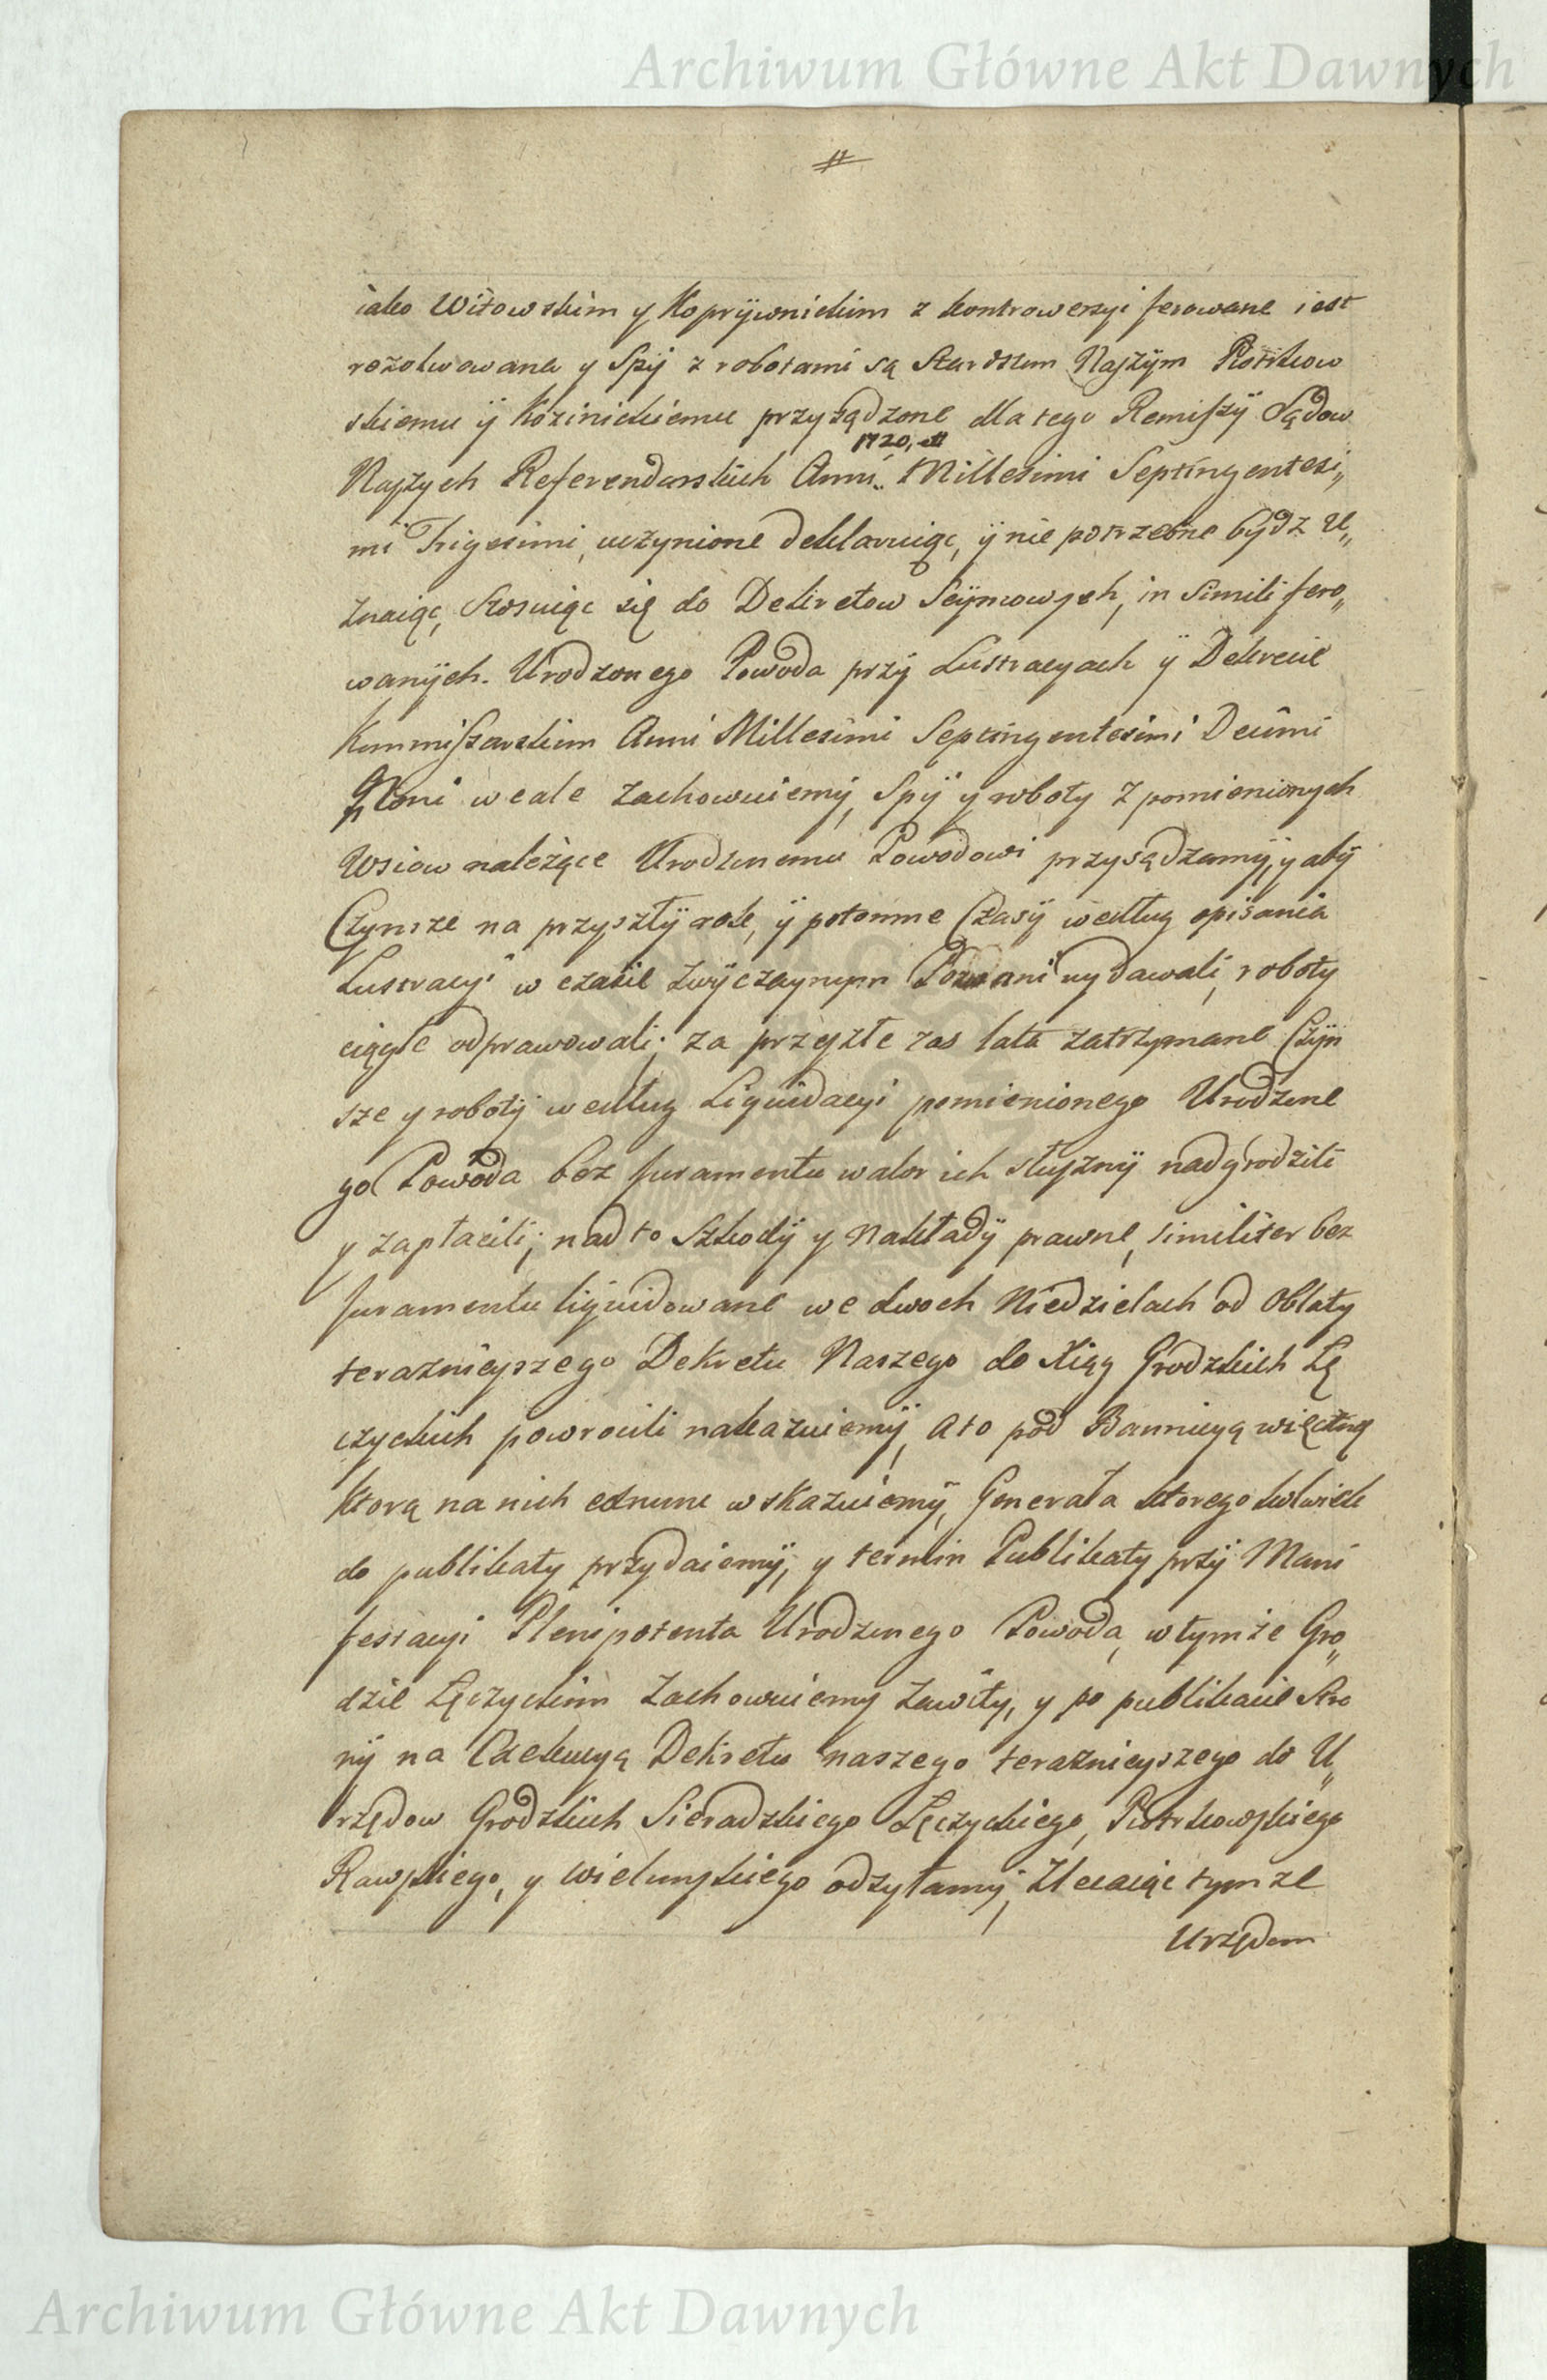 Archiwum Główne Akt Dawnych
iako Witowskim y Koprÿwnickim z kontrowersyi ferowane iest
rezolwowane y Spÿ z robotami są Starostom Naszÿm Piotrkow
skiemu ÿ Kozinickiemu przysądzone dla tego Remiszÿ Sądow
1720, et
Naszych Referendarskich Anni Millesimi Septingentesi„
mi Trigesimi, uczynione deklaruiąc, ÿ nie potrzebne bydz U„
znaiąc, Stosuiąc się do Dekretow Seÿmowych, in Simili fero„
wanÿch. Urodzonego Powoda przÿ Lustracyach ÿ Dekrecie
Kommiszarskim Anni Millesimi Septingentesimi Decimi
Noni wcale zachowuiemÿ, Spÿ y roboty z pomienionych
Wsiow należące Urodzonemu Powodowi przysądzamÿ, y abÿ
Czynsze na przyszłÿ rok, ÿ potomne Czasÿ według opisania
Lustracyi w czasie zwÿczaynym Pozwani wydawali, roboty
ciągłe odprawowali; za przeszłe zas lata zatrzymane Czÿn
sze y robotÿ według Liquidacyi pomienionego Urodzone
go Powoda bez Juramentu walor ich słusznÿ nadgrodzili
y zapłacili; nad to Szkodÿ y Nakładÿ prawne, similiter bez
Juramentu liquidowane we dwoch Niedzielach od Oblaty
teraznieyszego Dekretu Naszego do Xiąg Grodzkich Łę
czyckich powrocili nakazuiemÿ, a to pod Bannicyą wieczną
Ktorą na nich ex nunc wskazuiemÿ, Generała ktoregokolwiek
do publikaty przydaiemÿ, y termin Publikaty przÿ Mani
festacyi Plenipotenta Urodzonego Powoda, w tymże Gro„
dzie Łęczyckim zachowuiemy zawity, y po publikacie Stro
nÿ na Exekucyą Dekretu naszego teraznieyszego do U„
rzędow Grodzkich Sieradzkiego Łęczyckiego, Piotrkowskiego
Rawskiego, y Wielunskiego odsyłamÿ, Zlecaiąc tymże
Urzędom
Archiwum Główne Akt Dawnych